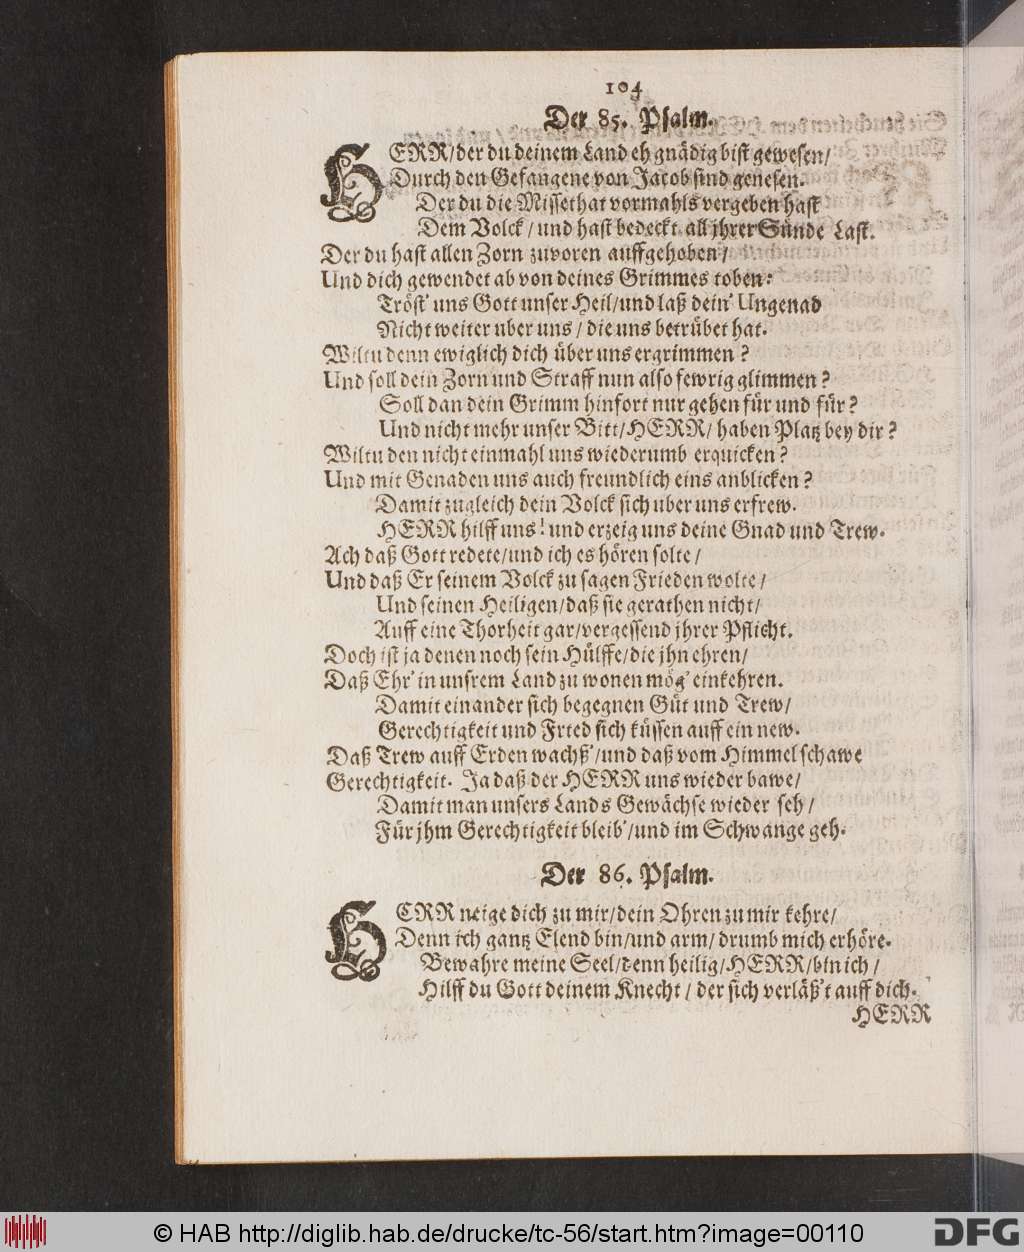 104
Der 85. Psalm.
HERR/der du deinem Land eh gnädig bist gewesen/
Durch den Gefangene von Jacob sind genesen.
Der du die Missethat vormahls vergeben hast
Dem Volck / und hast bedeckt all jhrer Sünde Last.
Der du hast allen Zorn zuvoren auffgehoben /
Und dich gewendet ab von deines Grimmes toben:
Tröst' uns Gott unser Heil/und laß dein' Ungenad
Nicht weiter uber uns / die uns betrübet hat.
Wiltu denn ewiglich dich über uns ergrimmen ?
Und soll dein Zorn und Straff nun also fewrig glimmen ?
Soll dan dein Grimm hinfort nur gehen für und für ?
Und nicht mehr unser Bitt/HERR/ haben Platz bey dir ?
Wiltu den nicht einmahl uns wiederumb erquicken ?
Und mit Genaden uns auch freundlich eins anblicken ?
Damit zugleich dein Volck sich uber uns erfrew.
HERR hilff uns! und erzeig uns deine Gnad und Trew.
Ach daß Gott redete/und ich es hören solte /
Und daß Er seinem Volck zu sagen Frieden wolte /
Und seinen Heiligen/daß sie gerathen nicht/
Auff eine Thorheit gar/vergessend jhrer Pflicht.
Doch ist ja denen noch sein Hülffe/die jhn ehren/
Daß Ehr' in unsrem Land zu wonen mög' einkehren.
Damit einander sich begegnen Güt und Trew/
Gerechtigkeit und Fried sich küssen auff ein new.
Daß Trew auff Erden wachß'/und daß vom Himmel schawe
Gerechtigkeit. Ja daß der HERR uns wieder bawe/
Damit man unsers Lands Gewächse wieder seh /
Für jhm Gerechtigkeit bleib'/und im Schwange geh.
Der 86. Psalm.
HERR neige dich zu mir/dein Ohren zu mir kehre/
Denn ich gantz Elend bin/und arm/ drumb mich erhöre.
Bewahre meine Seel/denn heilig/HERR/bin ich /
Hilff du Gott deinem Knecht / der sich verläß't auff dich.
HERR
© HAB http://diglib.hab.de/drucke/tc-56/start.htm?image=00110
DFG